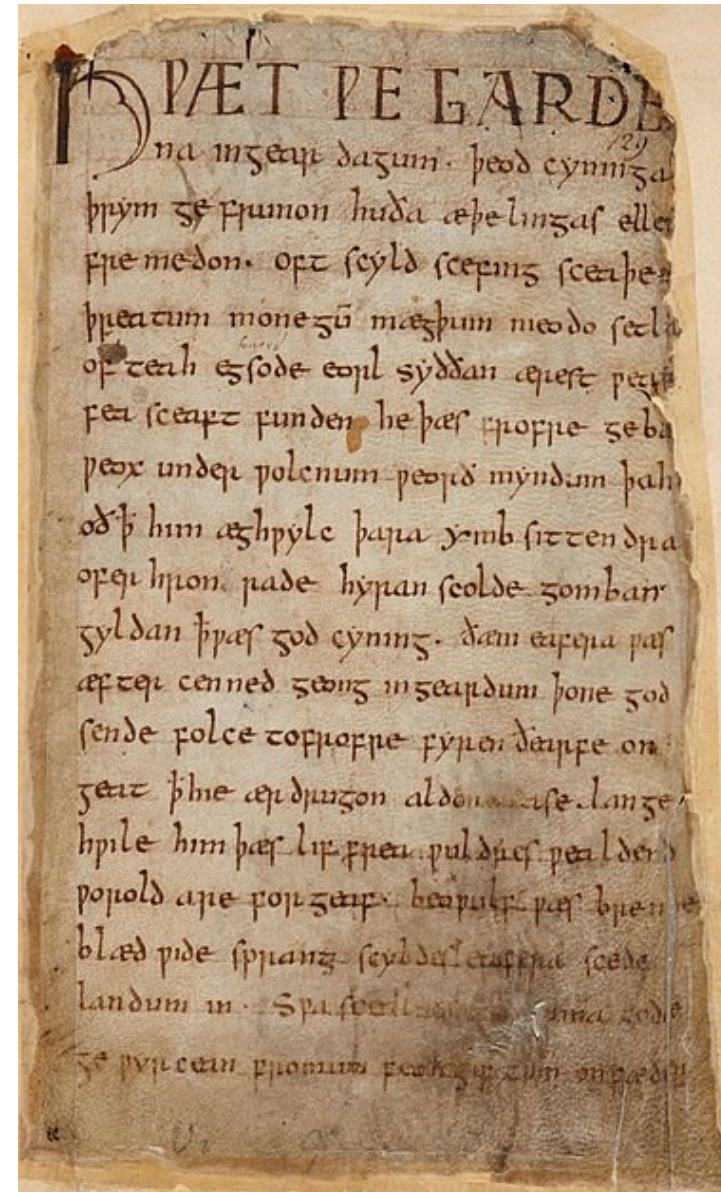 HǷÆT ǷE GARDE
129
na ingear dagum. þeod cyninga
þrym ge frunon huða æþelingas elle
fremedon. oft scyld scefing sceaþe
þreatum monegū mægþum meodo setla
of teah egsode eorl syððan ærest ƿear
fea sceaft funden he þæs frofre geba
ƿeox under ƿolcnum ƿeorð myndum þah
oð ꝥ him æghƿylc þara ymb sittendra
ofer hron rade hyran scolde gomban
gyldan ꝥ ƿæs god cyning. ðæm eafera ƿæs
æfter cenned geong in geardum þone god
sende folce to frofre fyren ðearfe on
geat ꝥ hie ær drugon aldor ase. lange
hƿile him þæs lif frea ƿuldres ƿealdend
ƿorold are for geaf. beoƿulf ƿæs breme
blæd ƿide sprang scyldes eafera scede
landum in. Sƿa sceal uma gode
ge ƿyrcean fromum feoh giftum on fæder